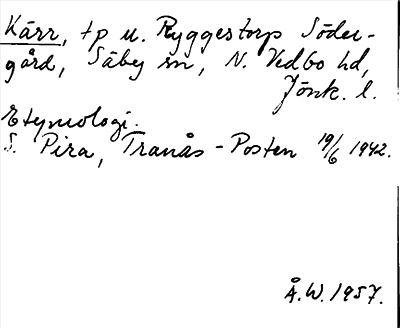 Kärr, tp u. Ryggestorps Söder-
gård, Säby sn, N. Vedbo hd,
Jönk. l.
Etymologi.
S. Pira, Tranås-Posten 19/6 1942.
Å.W. 1957.